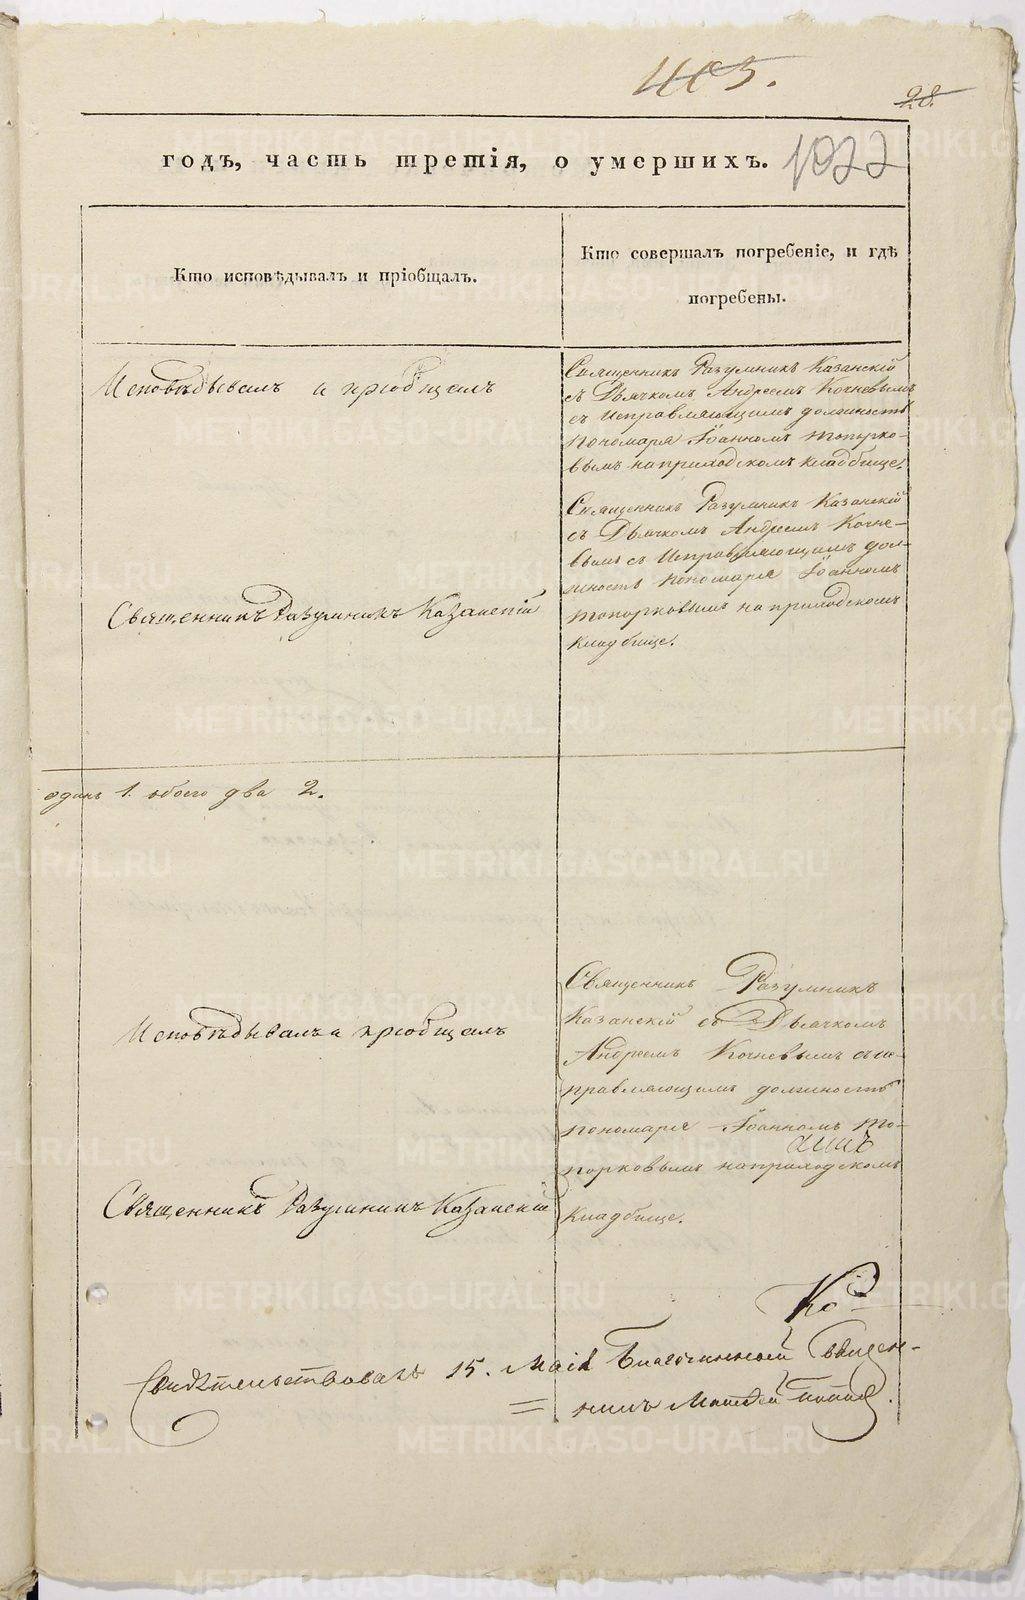 405.
28.
годъ, часть третія, о умершихъ. 1022
Кто исповѣдывалъ и пріобщалъ.
Кто совершалъ погребеніе, и гдѣ
погребены.
Исповѣдывалъ и пріобщалъ
Священникъ Разумникъ Казанскій
Священникъ Разумникъ Казанскій
съ Дьячкомъ Андреемъ Кочневымъ
съ исправляющимъ должность
пономаря Іоанномъ Топорко-
вымъ на приходскомъ кладбище.
Священникъ Разумникъ Казанскій
съ Дьячкомъ Андреемъ Кочне-
вымъ съ исправляющимъ дол-
жность пономаря Іоанномъ
Топорковымъ на приходскомъ
кладбище.
одинъ 1. обоего два 2.
Исповѣдывалъ и пріобщалъ
Священникъ Разумникъ Казанскій
Священникъ Разумникъ
Казанскій съ Дьячкомъ
Андреемъ Кочневымъ съ ис-
правляющимъ должность
пономаря Іоанномъ То-
порковымъ на приходскомъ
кладбище.
Свидѣтельствовалъ 15. Маія Благочинный Священ-
никъ Матвей Попов.
METRIKI.GASO-URAL.RU